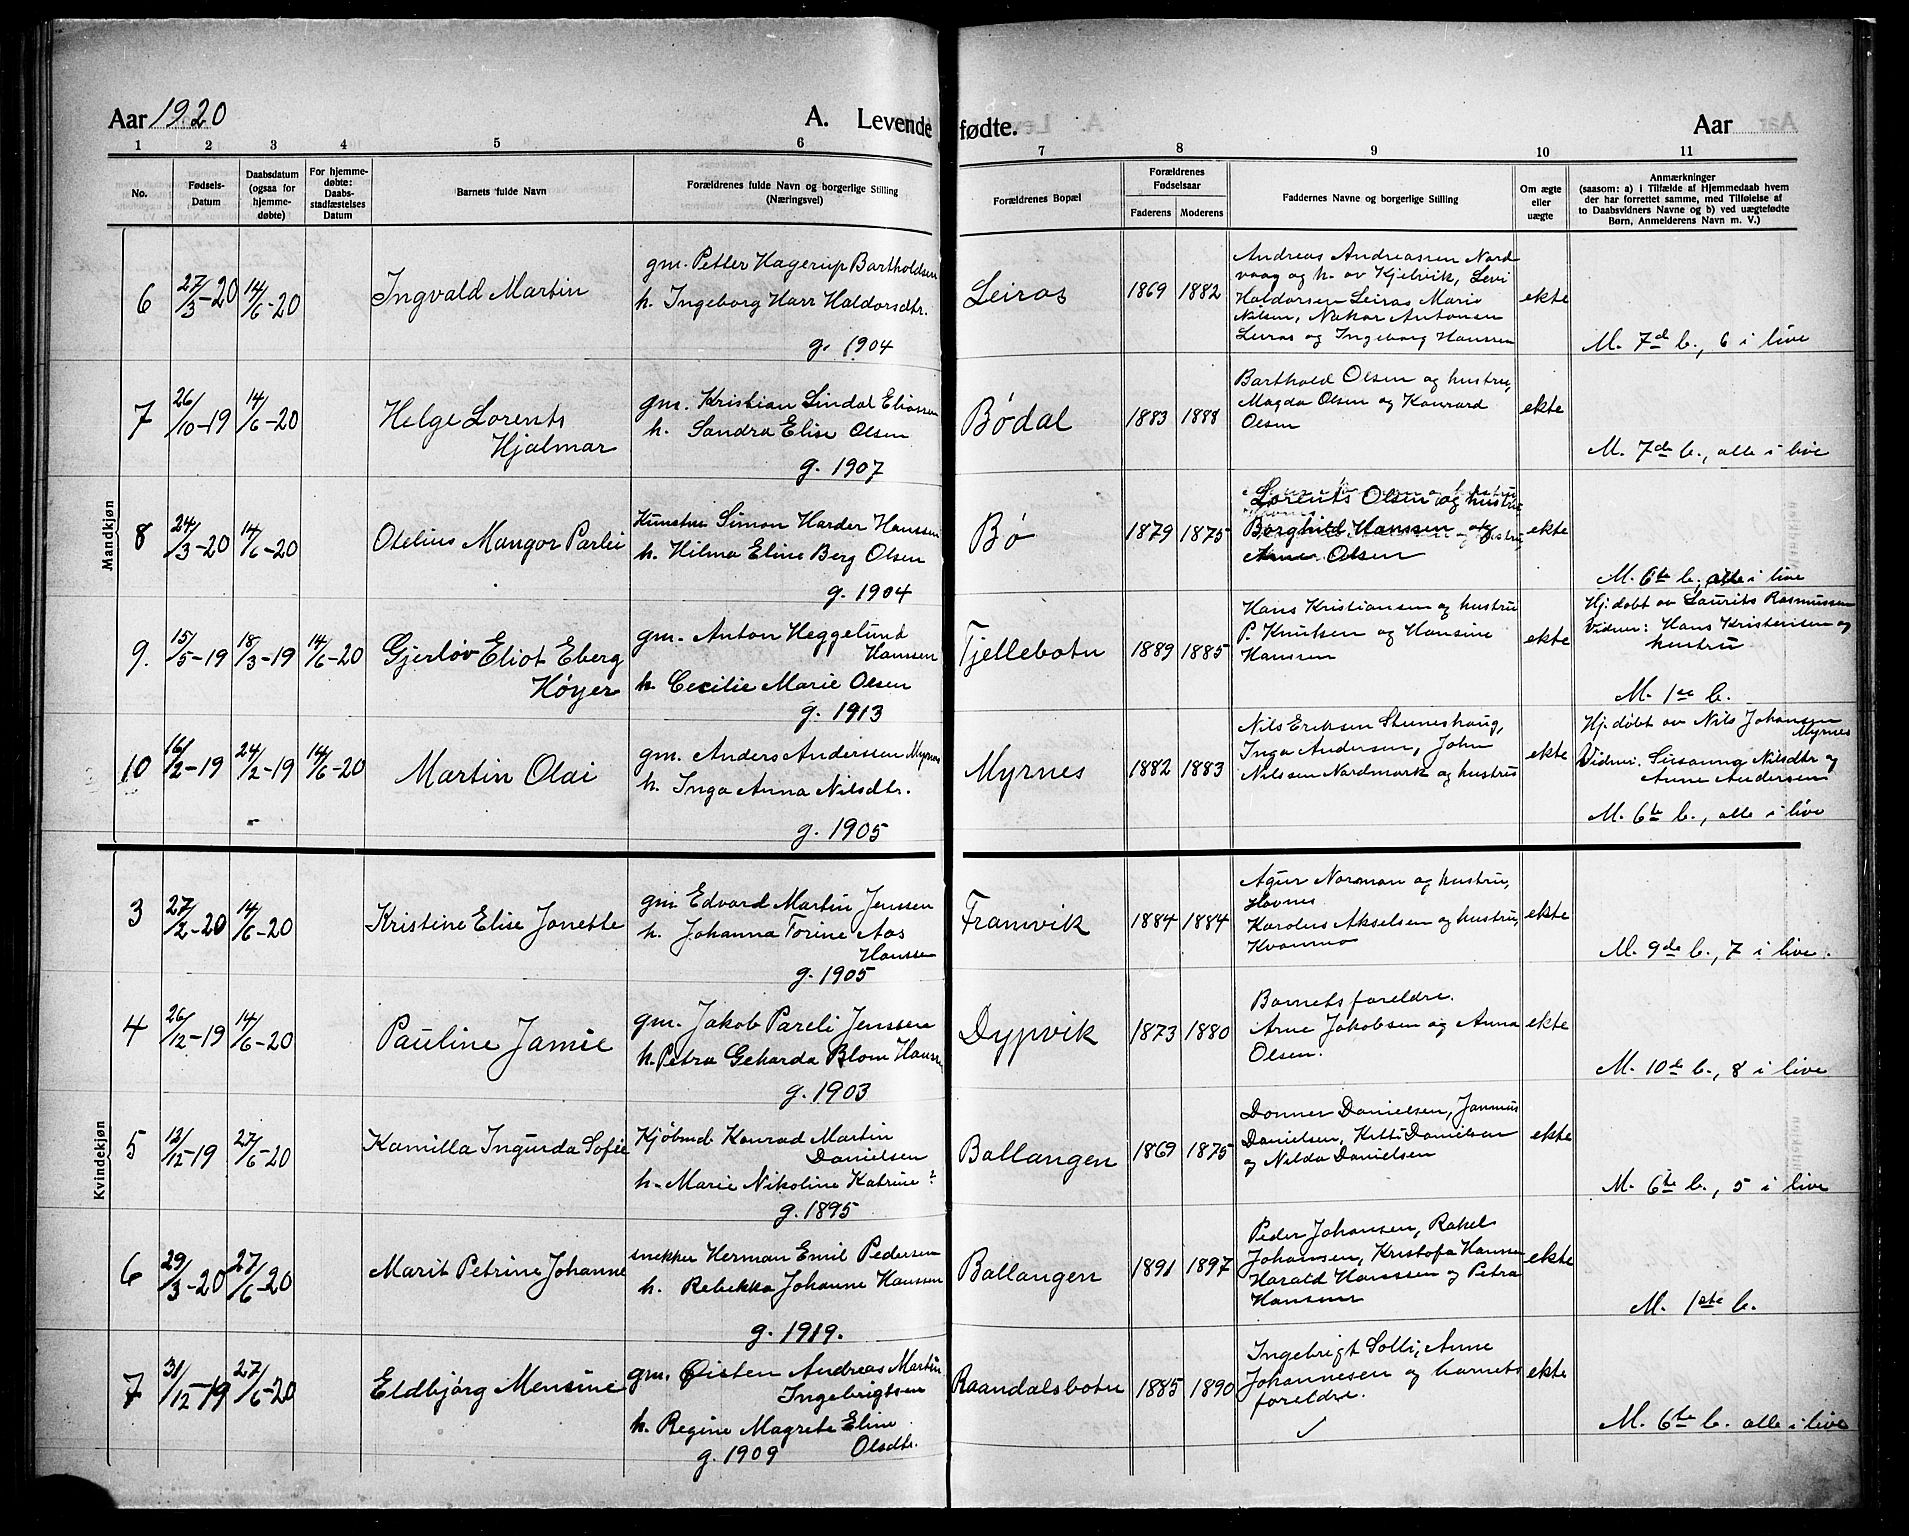 Aar 1920
A. Levende
fødte.
Aar
1 2 3 4 5 6 7 8 9 10 11
No.
Fødsels-
Datum
Daabsdatum
(ogsaa for
hjemme-
døbte)
For hjemme-
døbte:
Daabs-
stadfæstelses
Datum
Barnets fulde Navn
Forældrenes fulde Navn og borgerlige Stilling
(Næringsvei)
Forældrenes Bopæl
Forældrenes
Fødselsaar
Faderens Moderens
Faddernes Navne og borgerlige Stilling
Om ægte
eller
uægte
Anmærkninger
(saasom: a) i Tilfælde af Hjemmedaab hvem
der har forrettet samme, med Tilføielse af
to Daabsvidners Navne og b) ved uægtefødte
Børn, Anmelderens Navn m. V.)
Mandkjøn
6 27/3-20 14/6-20 Ingvald Martin
gm. Petter Hagerup Bartholdsen
h. Ingeborg Harr Haldorsdtr.
g. 1904
Leiros 1869 1882
Andreas Andreassen Nord
vaag og h. av Kjelvik, Levi
Haldorsen Leiros Marie
Nilsen, Nekar Antonsen
Leiros og Ingeborg Hanssen
ekte
M. 7de b., 6 i live
7 26/10-19 14/6-20 Helge Lorents
Hjalmar
gm. Kristian Lindal Eliassen
h. Sandra Elise Olsen
g. 1907
Bødal 1883 1888
Barthold Olsen og hustru,
Magda Olsen og Konrard
Olsen
ekte
M. 7de b., alle i live
8 24/3-20 14/6-20 Otelius Mangor Parlei
Simon Harder Hanssen
h. Hilma Eline Berg Olsen
g. 1904
Bø 1879 1875
Lorents Olsen og hustru
Borghild Hanssen og
Arne Olsen
ekte
M. 6te b., alle i live
9. 15/5-19 18/3-19 14/6-20 Gjerløv Eliot Eberg
Høyer
gm. Anton Heggelund
Hanssen
h. Cecilie Marie Olsen
g. 1913
Tjellebotn 1889 1885
Hans Kristiansen og hustru
P. Knutsen og Hansine
Hanssen
ekte
Hj. døbt av Laurits Rasmussen
Vidner: Hans Kristensen og
hustru
M. 1se b.
10 16/2-19 24/2-19 14/6-20 Martin Olai
gm. Anders Andersson Myrnes
h. Inga Anna Nilsdtr.
g. 1905
Myrnes 1882 1883
Nils Eriksen Steneshaug,
Inga Andersen, John
Nilssen Nordmork og hustru
ekte
Hj. døbt av Nils Johansen
Myrnes
Vidner: Susanna Nilsdtr og
Anne Andersen
M. 6te b., alle i live
Kvindekjøn
3 27/2-20 14/6-20 Kristine Elise Jonette
gm Edvard Martin Jenssen
h. Johanna Torine Aas
Hanssen
g. 1905
Framvik 1884 1884
Agur Norman og hustru,
Havnes
Karolus Akselsen og hustru,
Kvanmo
ekte
M. 9de b., 7 i live.
4 26/12-19 14/6-20 Pauline Jamie
gm. Jakob Pareli Jenssen
h. Petra Geharda Blom Hanse
g. 1903
Dypvik 1873 1880
Barnets foreldre.
Arne Jakobsen og Anna
Olsen.
ekte
M. 10de b., 8 i live
5 12/12-19 27/6-20 Kamilla Ingunda Sofie
Kjøbmd. Konrad Martin
Danielsen
h. Marie Nikoline Katrine ?
g. 1895
Ballangen 1869 1875
Donner Danielsen, Janmus
Danielsen, Kitti Danielsen
og Nilda Danielsen
ekte
M. 6te b., 5 i live
6 29/3-20 27/6-20 Marit Petrine Johanne
snekker Herman Emil Pedersen
h. Rebekka Johanne Hanssen
g. 1919.
Ballangen 1891 1897
Peder Johansen, Rakel
Johansen, Kristofa Hanssen
Harald Hanssen og Petra
Hanssen
ekte
M. 1ste b.
7 31/12-19 27/6-20 Eldbjørg Mensine
gm. Øisten Andreas Martin
Ingebrigtsen
h. Regine Magrete Eline
Olsdtr.
g. 1909
Raandalsbotn 1885 1890
Ingebrigt Solli, Anne
Johannesen og barnets
foreldre.
ekte
M. 6te b. alle i live